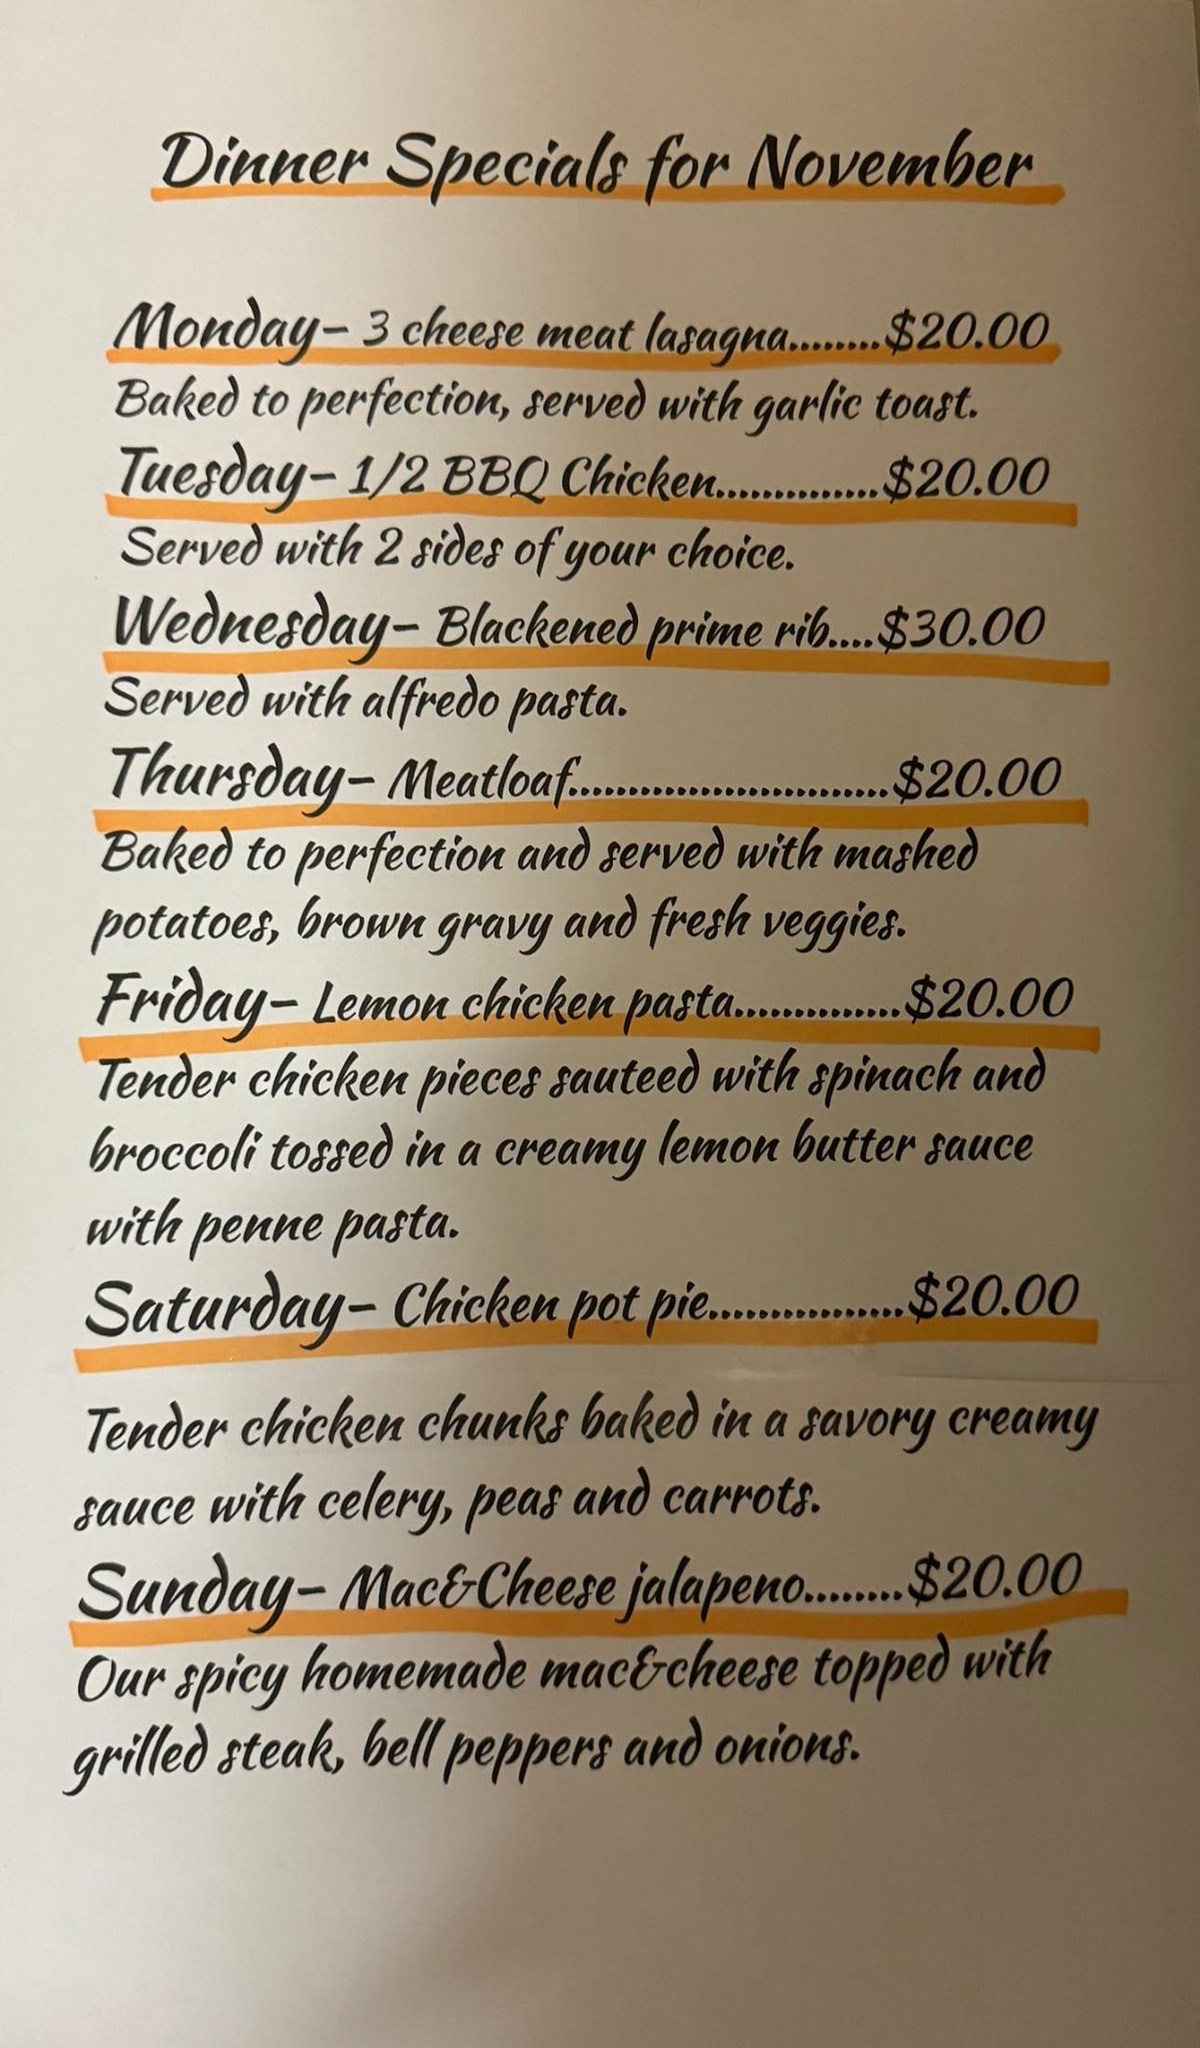 Dinner Specials for November
Monday- 3 cheese meat lasagna........$20.00
Baked to perfection, served with garlic toast.
Tuesday- 1/2 BBQ Chicken..............$20.00
Served with 2 sides of your choice.
Wednesday- Blackened prime rib....$30.00
Served with alfredo pasta.
Thursday- Meatloaf...........................$20.00
Baked to perfection and served with mashed
potatoes, brown gravy and fresh veggies.
Friday- Lemon chicken pasta..............$20.00
Tender chicken pieces sauteed with spinach and
broccoli tossed in a creamy lemon butter sauce
with penne pasta.
Saturday- Chicken pot pie................$20.00
Tender chicken chunks baked in a savory creamy
sauce with celery, peas and carrots.
Sunday- Mac&Cheese jalapeno........$20.00
Our spicy homemade mac&cheese topped with
grilled steak, bell peppers and onions.